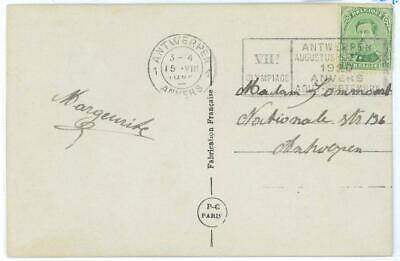 ANTWERPEN
3-4
15 VIII
1920
ANVERS
VIIE
OLYMPIADE
ANTWERPEN
AUGUSTUS-
1920
ANVERS
AOUT-SEPTEMBRE
Margeurite
Madam
Nationale Str 136
Antwerpen
Fabrication Française
P-C
PARIS